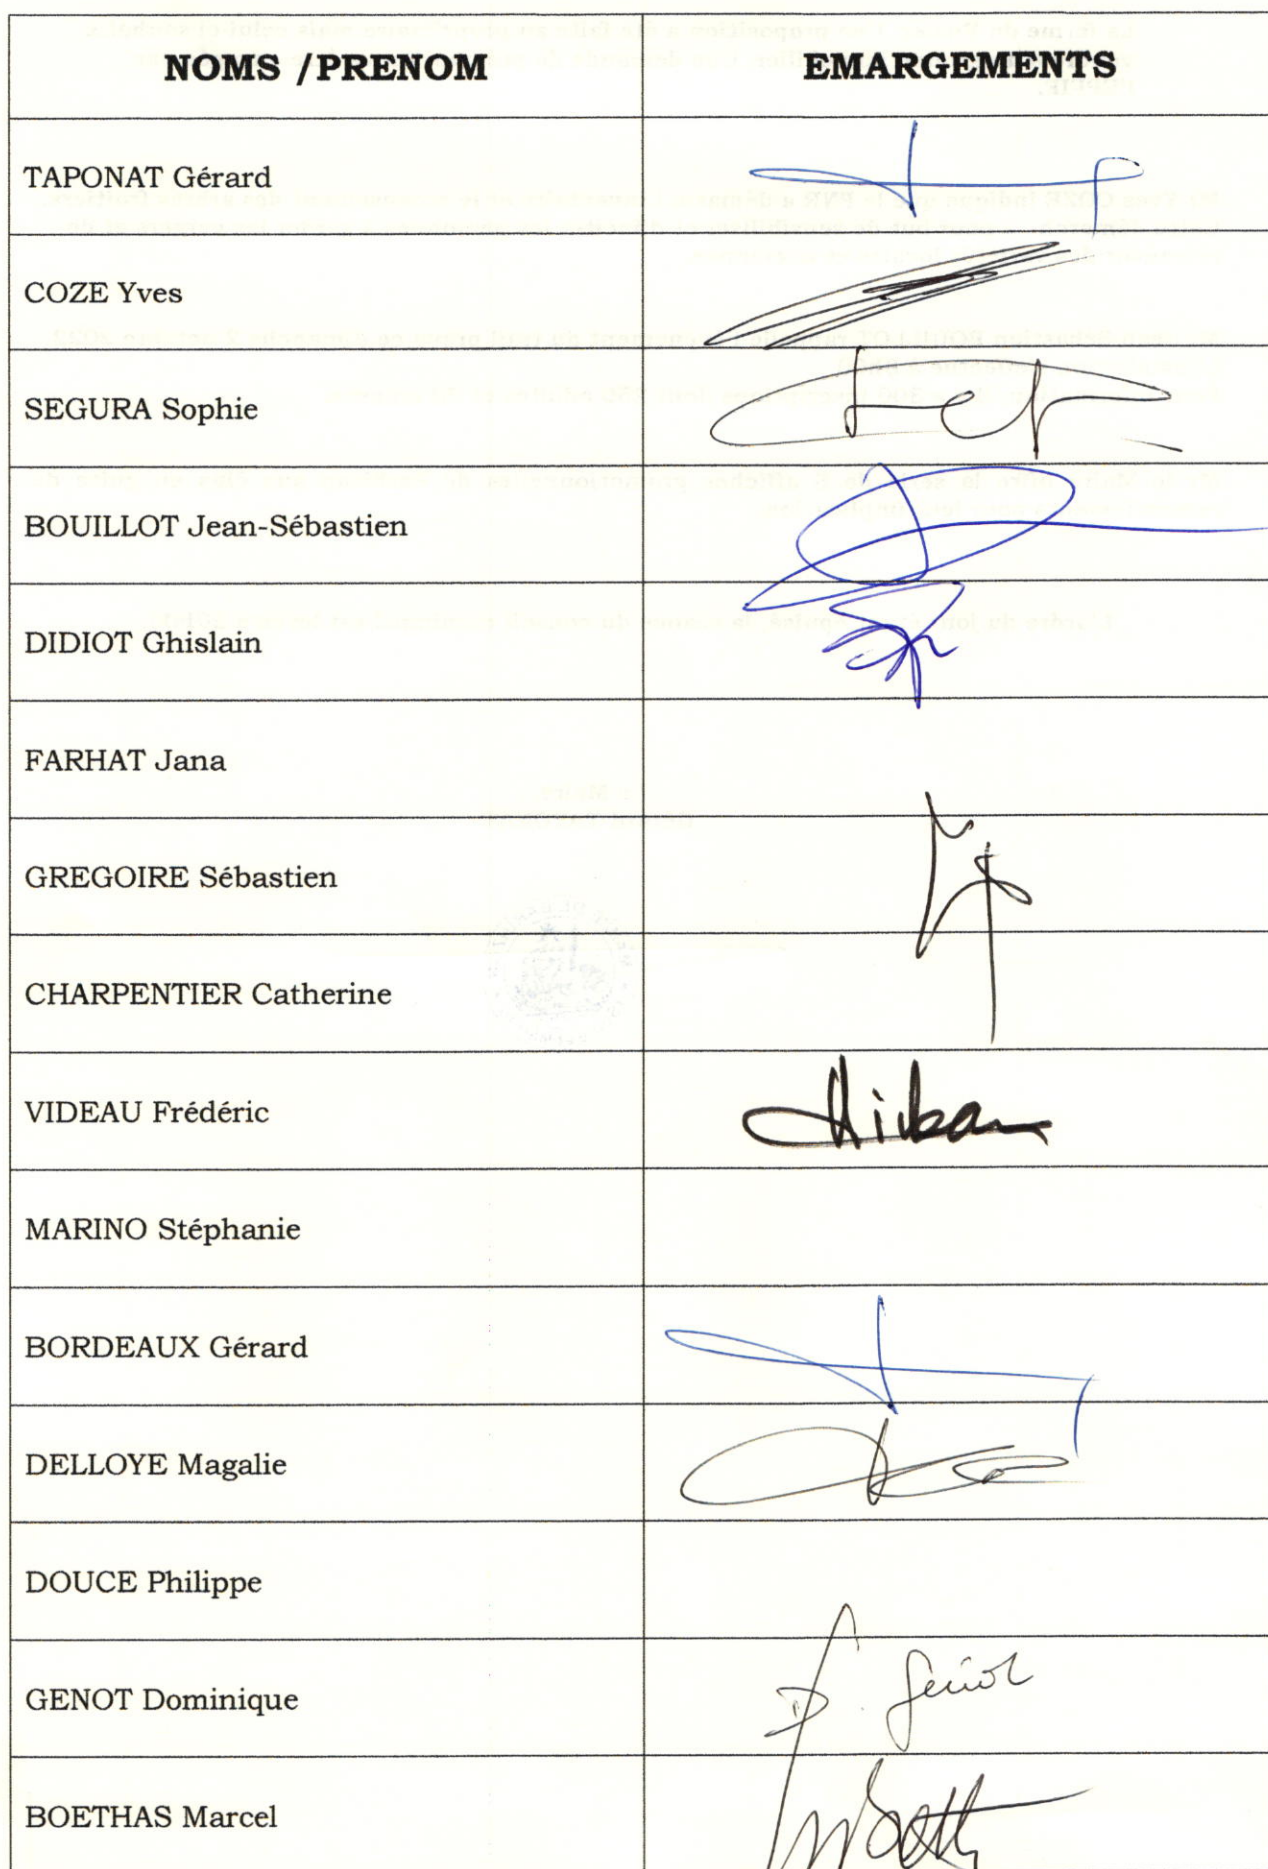 NOMS /PRENOM EMARGEMENTS
TAPONAT Gérard
COZE Yves
SEGURA Sophie
BOUILLOT Jean-Sébastien
DIDIOT Ghislain
FARHAT Jana
GREGOIRE Sébastien
CHARPENTIER Catherine
VIDEAU Frédéric
MARINO Stéphanie
BORDEAUX Gérard
DELLOYE Magalie
DOUCE Philippe
GENOT Dominique D. Genot
BOETHAS Marcel